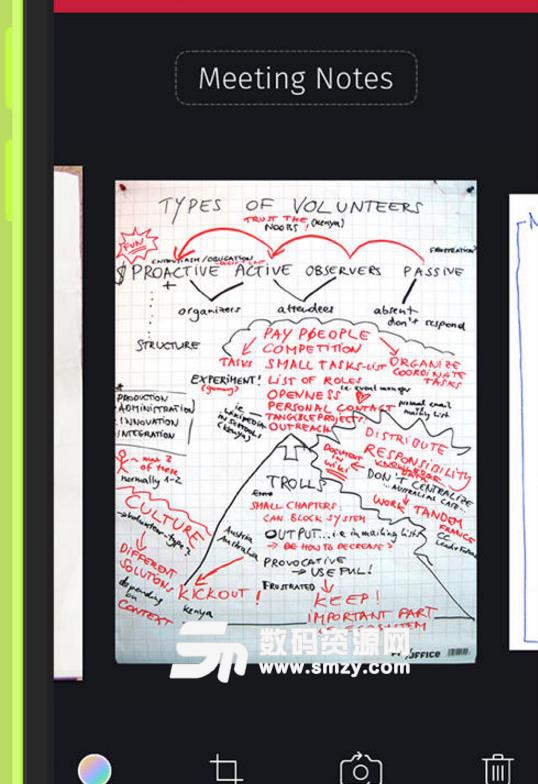 Meeting Notes
TYPES OF VOLUNTEERS
TRUST THE
NOOBS! (Kenya)
FUN
ENTHUSIASM/OBLIGATION
FRUSTRATION?
PROACTIVE ACTIVE OBSERVERS PASSIVE
+
organizers attendees absent
don't respond
STRUCTURE
PAY PEOPLE
COMPETITION
TASKS SMALL TASKS-LIST
ORGANIZE
COORDINATE
TASKS
EXPERIMENT! LIST OF ROLES
(germany)
i.e. event manager
OPENNESS
PERSONAL CONTACT
personal email
mailing list
TANGIBLE PROJECTS
OUTREACH
i.e.
WIKIPEDIA
IN SCHOOLS
(Kenya)
PRODUCTION
ADMINISTRATION
INNOVATION
INTEGRATION
max 2
of these
normally 1-2
DISTRIBUTE
RESPONSIBILITY
KNOWLEDGE
DOCUMENT
IN
WIKI
DON'T CENTRALIZE
AUSTRALIAN CASE
TROLLS
WORK TANDOM
FRANCE
CC
SMALL CHAPTERS
CAN BLOCK SYSTEM
CULTURE
volunteer-type?
Austria
Australia
OUTPUT... i.e. in mailing list
→ BE HOW TO DECREASE?
PROVOCATIVE
→ USEFUL!
DIFFERENT
SOLUTIONS
depending
on
CONTEXT
KICKOUT!
Kenya
FRUSTRATED
KEEP!
IMPORTANT PART
ECOSYSTEM
OFFICE
数码资源网
www.smzy.com